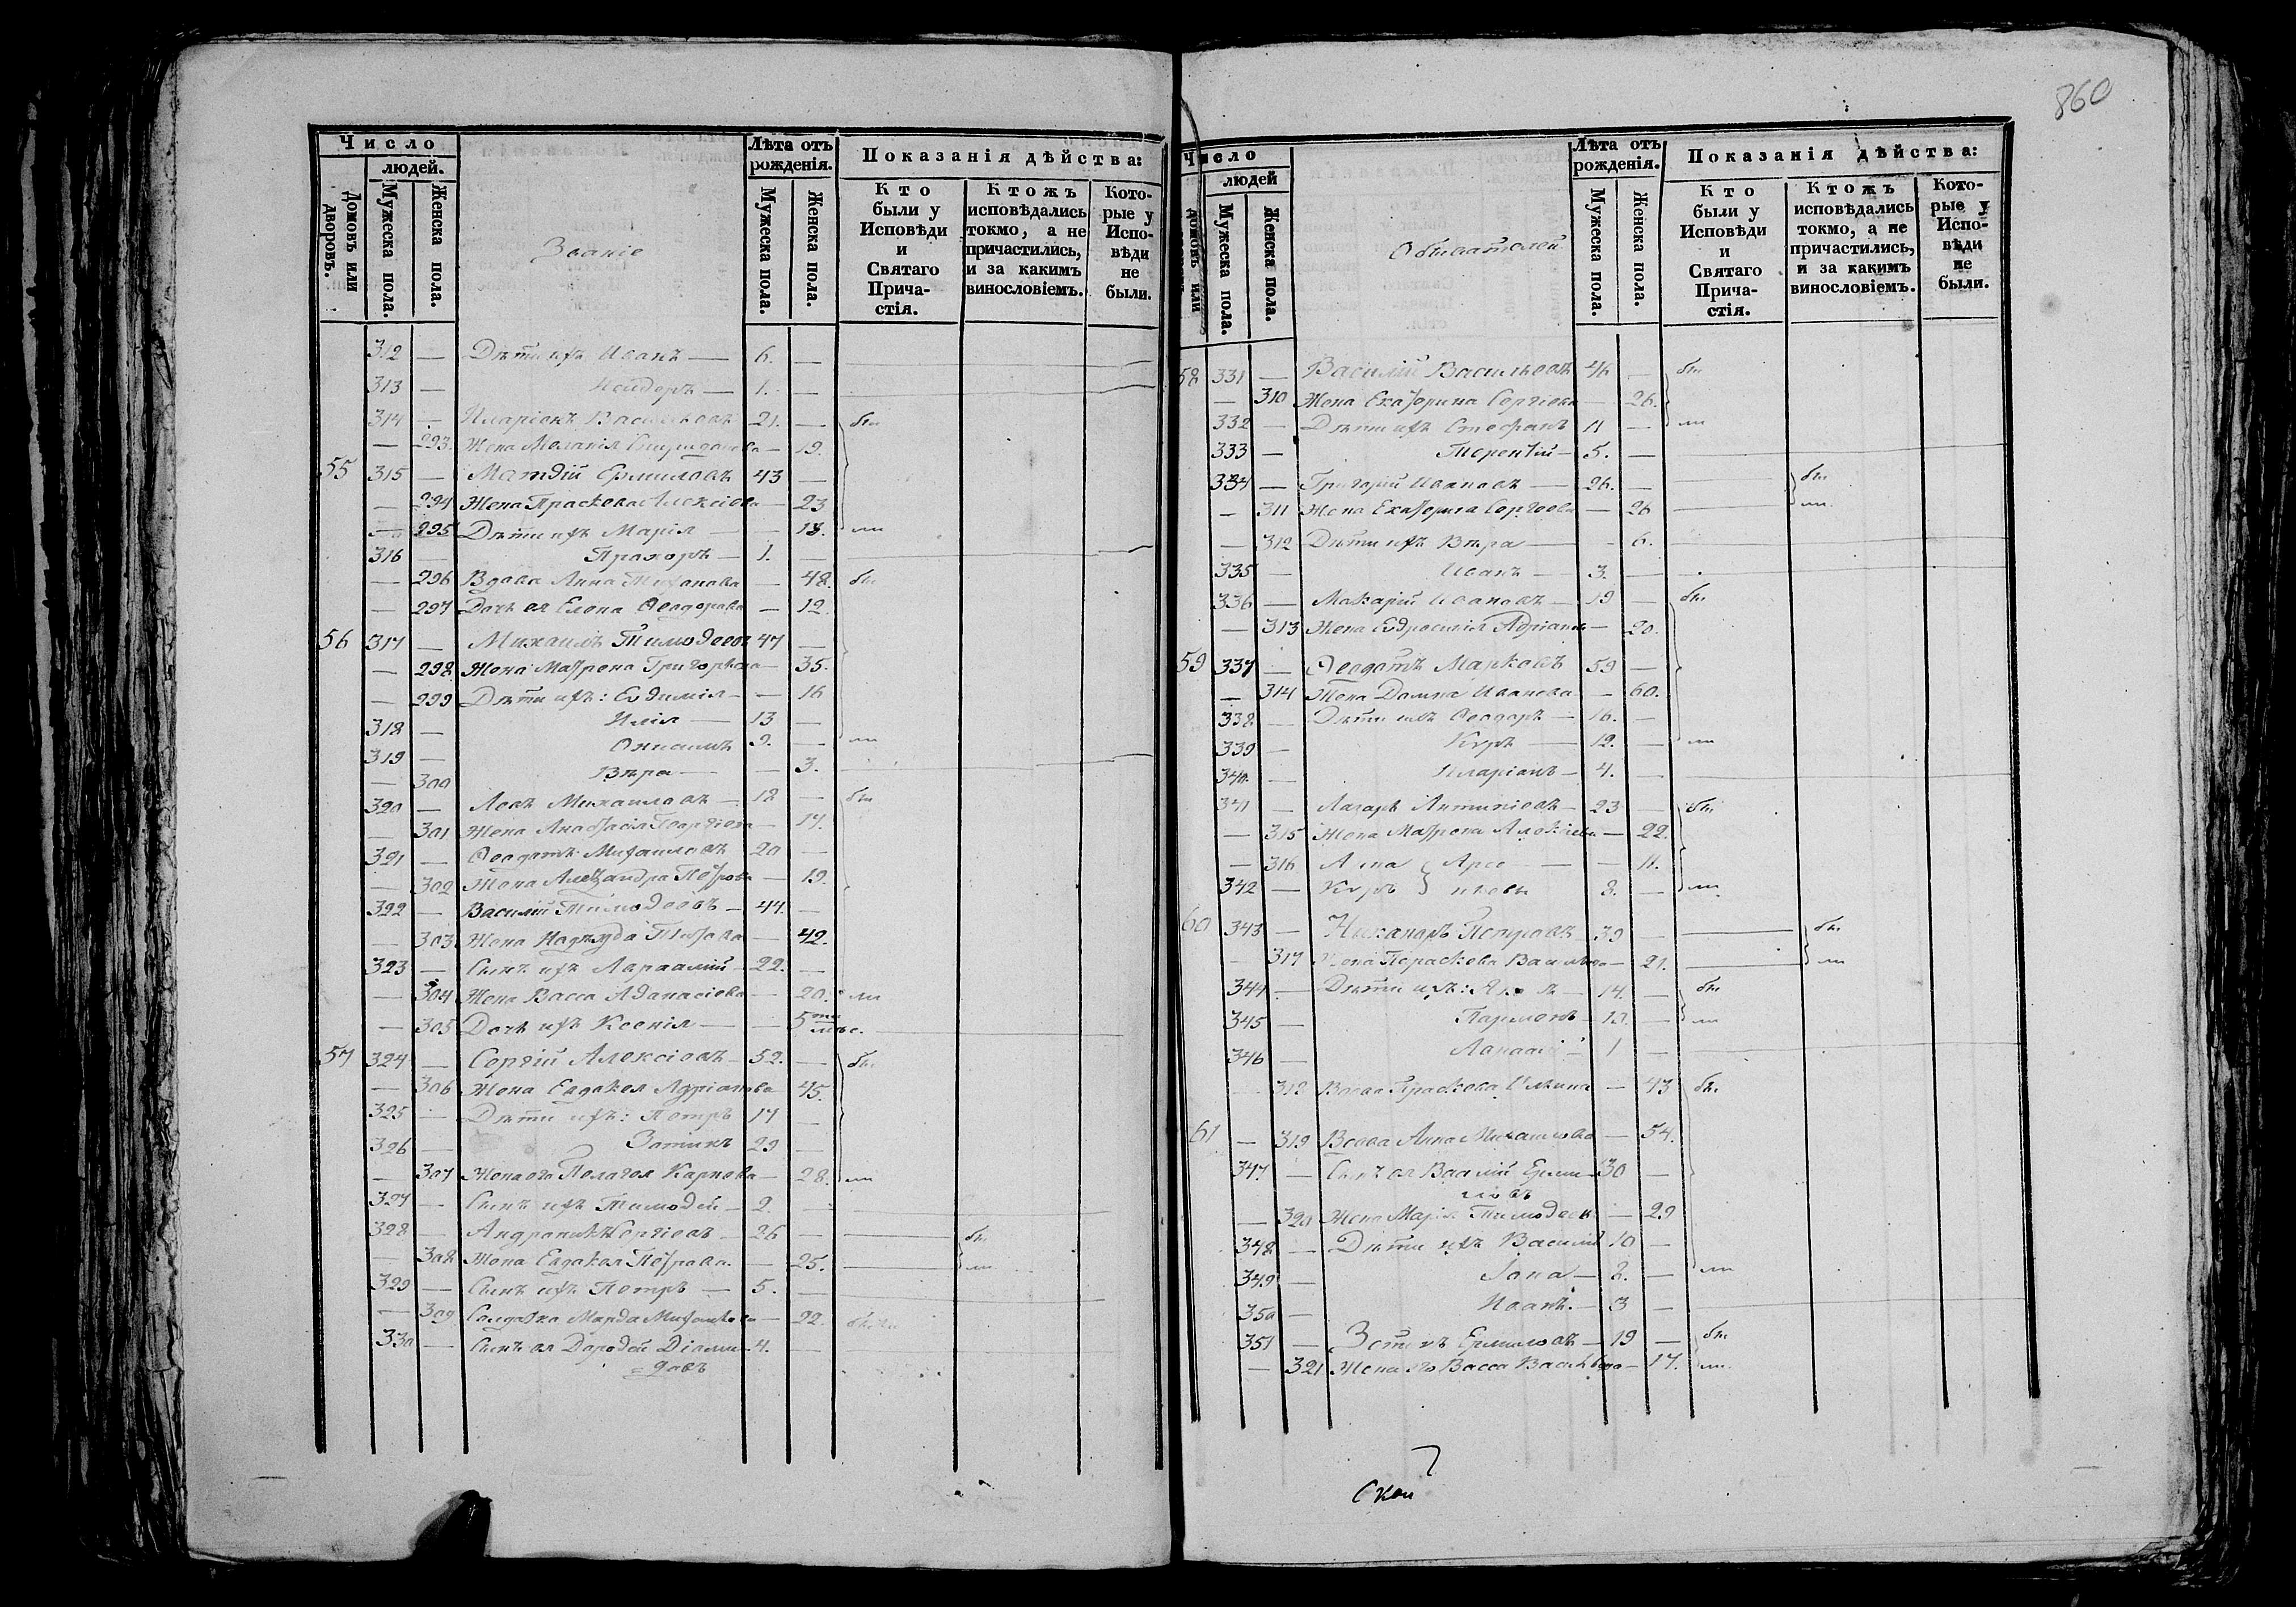 Число
людей.
Домовъ или дворовъ.
Мужеска пола.
Женска пола.
Званіе
Лѣта отъ рожденія.
Мужеска пола.
Женска пола.
Показанія дѣйства:
Кто были у Исповѣди и Святаго Причастія.
Ктожъ исповѣдались токмо, а не причастились, и за какимъ винословіемъ.
Которые у Исповѣди не были.
312 — Дѣти ихъ Иванъ — 6. —
313 — Исидоръ — 1. —
314 — Иларіонъ Васильевъ 21. — бы
— 293. Жена Меланія Спиридонова — 19.
55 315 — Матѳій Ермиловъ 43 —
— 294 Жена Праскева Алексіева — 23
— 295 Дѣти ихъ Марія — 18. ли
316 — Прохоръ — 1. —
— 296 Вдова Анна — 48. бы
— 297 Дочь ея Елена Ѳеодорова — 12.
56 317 — Михаилъ Тимоѳеевъ 47 —
— 298 Жена Матрона Григорьева — 35.
— 299 Дѣти ихъ: Евѳимія — 16
318 — Илія — 13 —
319 — Онисимъ 9. — ли
— 300 Вѣра — — 3.
320 — Левъ Михаиловъ — 18 — бы
— 301 Жена Анастасія Георгіева — 17.
321 — Ѳеодотъ Михаиловъ 20 —
— 302 Жена Александра Петрова — 19.
322 — Василій Тимоѳеевъ — 44. —
— 303 Жена Надежда Титова — 42.
323 — Сынъ ихъ Варлаамій — 22. —
— 304 Жена Васса Аѳанасіева — 20. ли
— 305 Дочь ихъ Ксенія — — 5ти мѣс.
57 324 — Сергій Алексіевъ — 52. — бы
— 306 Жена Евдокея Адріанова 45.
325 — Дѣти ихъ: Петръ 17 —
326 — Зотикъ 29 —
— 307 Жена его Пелагея Карпова — 28. ли
327 — Сынъ ихъ Тимоѳей — 2. —
328 — Андроникъ Сергіевъ — 26 — бы
— 308 Жена Евдокея Петрова. — 25. ли
329 — Сынъ ихъ Петръ — 5. —
— 309 Солдатка Марѳа Михаилова — 22. была
330 — Сынъ ея Дороѳей Діоми- 4. —
=довъ
860
Число
людей
Домовъ или
Мужеска пола.
Женска пола.
Обывателей
Лѣта отъ рожденія.
Мужеска пола.
Женска пола.
Показанія дѣйства:
Кто были у Исповѣди и Святаго Причастія.
Ктожъ исповѣдались токмо, а не причастились, и за какимъ винословіемъ.
Которые у Исповѣди не были.
58 331 — Василій Васильевъ 46 — бы
— 310 Жена Екатерина Сергіева — 26.
332 — Дѣти ихъ Стефанъ 11 — ли
333 — Терентій — 5. —
334 — Григорій Ивановъ — 26. — бы
— 311 Жена Екатерина Сергеева — 26 ли
— 312 Дѣти ихъ Вѣра — 6.
335 — Иванъ — 3. —
336 — Макарій Ивановъ — 19 — бы
— 313 Жена Евфросинія Адріанова — 20.
59 337 — Ѳеодотъ Марковъ 59 —
— 314 Жена Домна Иванова — 60.
338 — Дѣти ихъ Ѳеодоръ — 16. —
339 — Кѵръ — 12. — ли
340. — Иларіонъ — 4. —
341 — Лазарь Антипіевъ — 23 — бы
— 315 Жена Матрона Алексіева — 22.
— 316 Анна } Арсе — — 11.
342 — Кѵръ } ніевы 8. — ли
60 343 — Никаноръ Петровъ 39 — бы
— 317 Жена Параскева Васильева — 21. ли
344 — Дѣти ихъ: — 14. — бы
345 — Парменъ — 12. — ли
346 — 1 —
318 Вдова Праскева — 43 бы
61 — 319 Вдова Анна Михаилова — 54.
347. — Сынъ ея Василій Ерми- 30 —
ловъ
— 320 Жена Марія Тимоѳеева — 29
348 — Дѣти ихъ Василій 10 —
349 — Іона — 8. — ли
350 — Иванъ. — 3 —
351 — Зотикъ Ермиловъ — 19 — бы
— 321 Жена его Васса Васильева — 17. ли
Скои